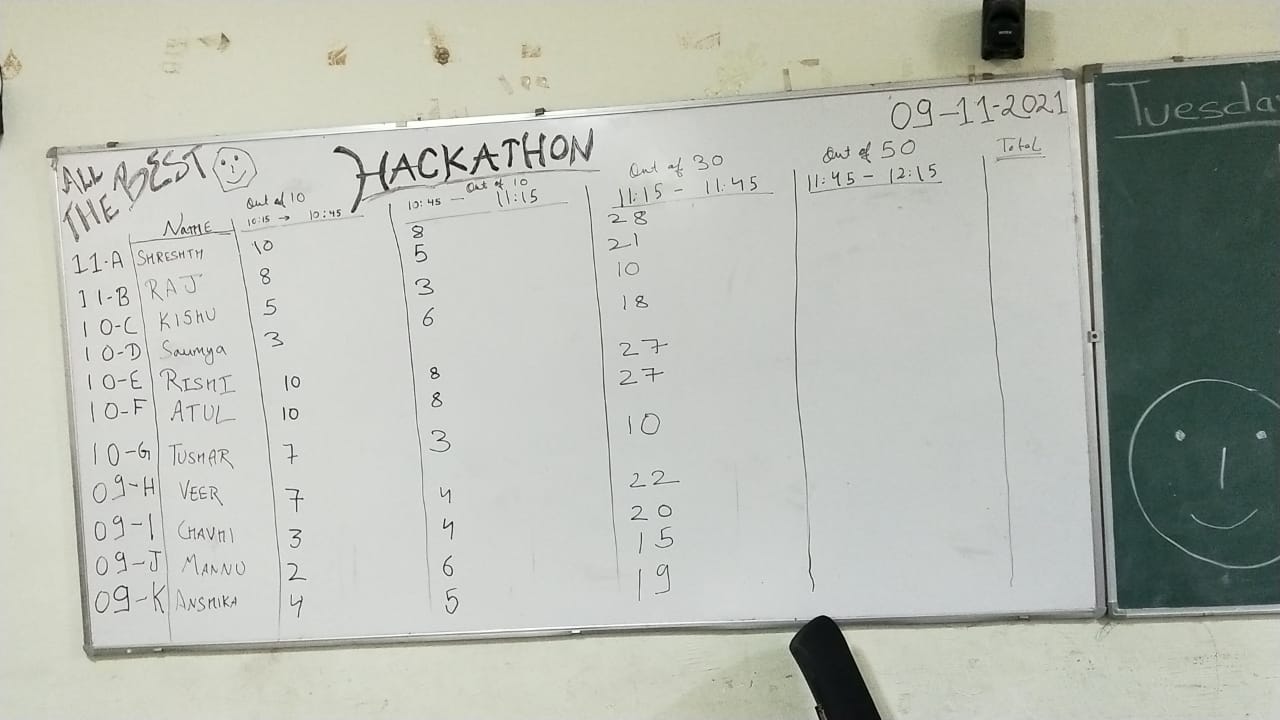 ALL
THE BEST
HACKATHON
09-11-2021
Tuesda
NAME Out of 10 Out of 10 Out of 30 Out of 50 Total
10:15 → 10:45 10:45 — 11:15 11:15 - 11:45 11:45 - 12:15
11-A SHRESHTH 10 8 28
11-B RAJ 8 5 21
10-C KISHU 5 3 10
10-D Saumya 3 6 18
10-E RISHI 10 8 27
10-F ATUL 10 8 27
10-G TUSHAR 7 3 10
09-H VEER 7 4 22
09-I CHAVHI 3 4 20
09-J MANNU 2 6 15
09-K ANSHIKA 4 5 19